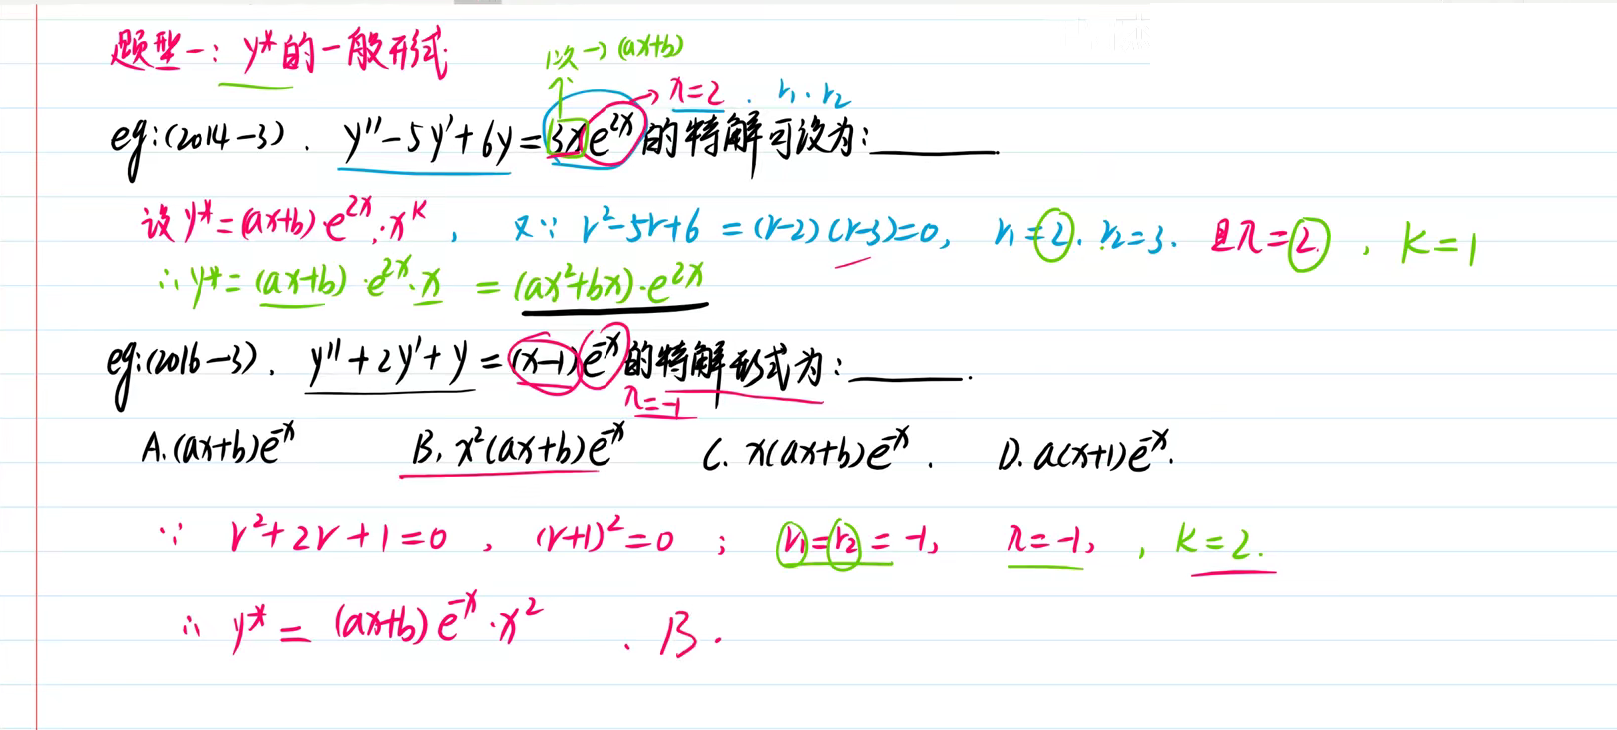 题型一: y*的一般形式.
1次→(ax+b)
λ=2 . r₁.r₂
eg:(2014-3). y''-5y'+6y=3xe^{2x}的特解可设为:______
设y*=(ax+b)·e^{2x}·x^K, 又∵ r²-5r+6=(r-2)(r-3)=0, r₁=2. r₂=3. 且λ=2, K=1
∴y*=(ax+b)·e^{2x}·x=(ax²+bx)·e^{2x}
eg:(2016-3). y''+2y'+y=(x-1)e^{-x}的特解形式为:______.
λ=-1
A.(ax+b)e^{-x} B. x²(ax+b)e^{-x} C. x(ax+b)e^{-x}. D. a(x+1)e^{-x}.
∵ r²+2r+1=0, (r+1)²=0; r₁=r₂=-1, λ=-1, , K=2.
∴ y*=(ax+b)e^{-x}·x² . B.